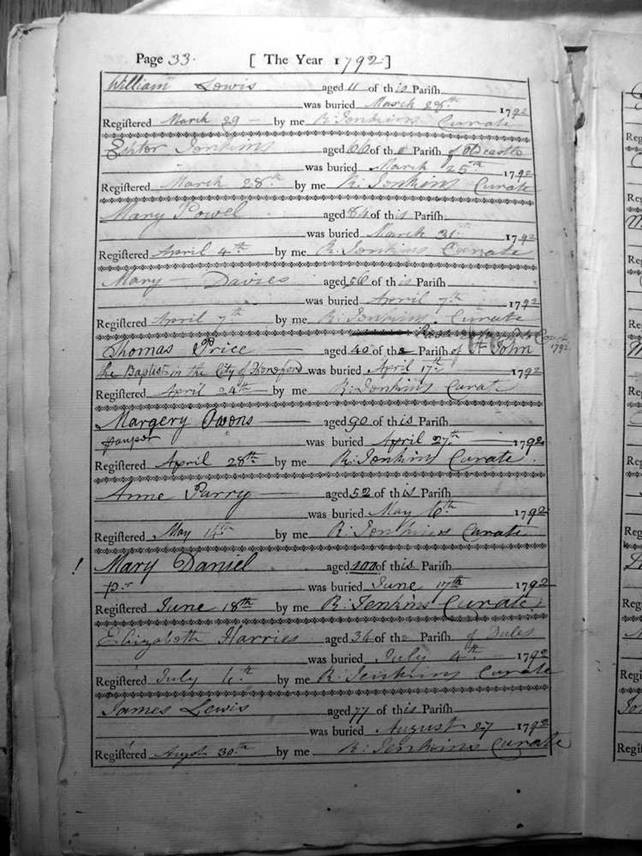 Page 33. [ The Year 1792 ]
William Lewis aged 11 of this Parish
was buried March 28th 1792
Registered March 29 by me R. Jenkins Curate
Jenkins aged of the Parish of
was buried March 25th 1792
Registered March 28th by me R. Jenkins Curate
Mary Powel aged 84 of this Parish
was buried March 31st 1792
Registered April 4th by me R. Jenkins Curate
Mary Davies aged of this Parish
was buried April 7th 1792
Registered April 7th by me R. Jenkins Curate
1792
Thomas Price aged 40 of the Parish of St. John
the Baptist in the City of Hereford was buried April 17th 1792
Registered April 24th by me R. Jenkins Curate
Margery Owens aged 90 of this Parish
pauper was buried April 27th 1792
Registered April 28th by me R. Jenkins Curate.
Anne Parry aged 52 of this Parish
was buried May 1792
Registered May by me R. Jenkins Curate
! Mary Daniel aged 100 of this Parish
pr was buried June 17th 1792
Registered June 18th by me R. Jenkins Curate
Elizabeth Harries aged 36 of the Parish of
was buried July 4th 1792
Registered July by me R. Jenkins Curate
James Lewis aged 77 of this Parish
was buried August 27 1792
Registered Augst 30th by me R. Jenkins Curate